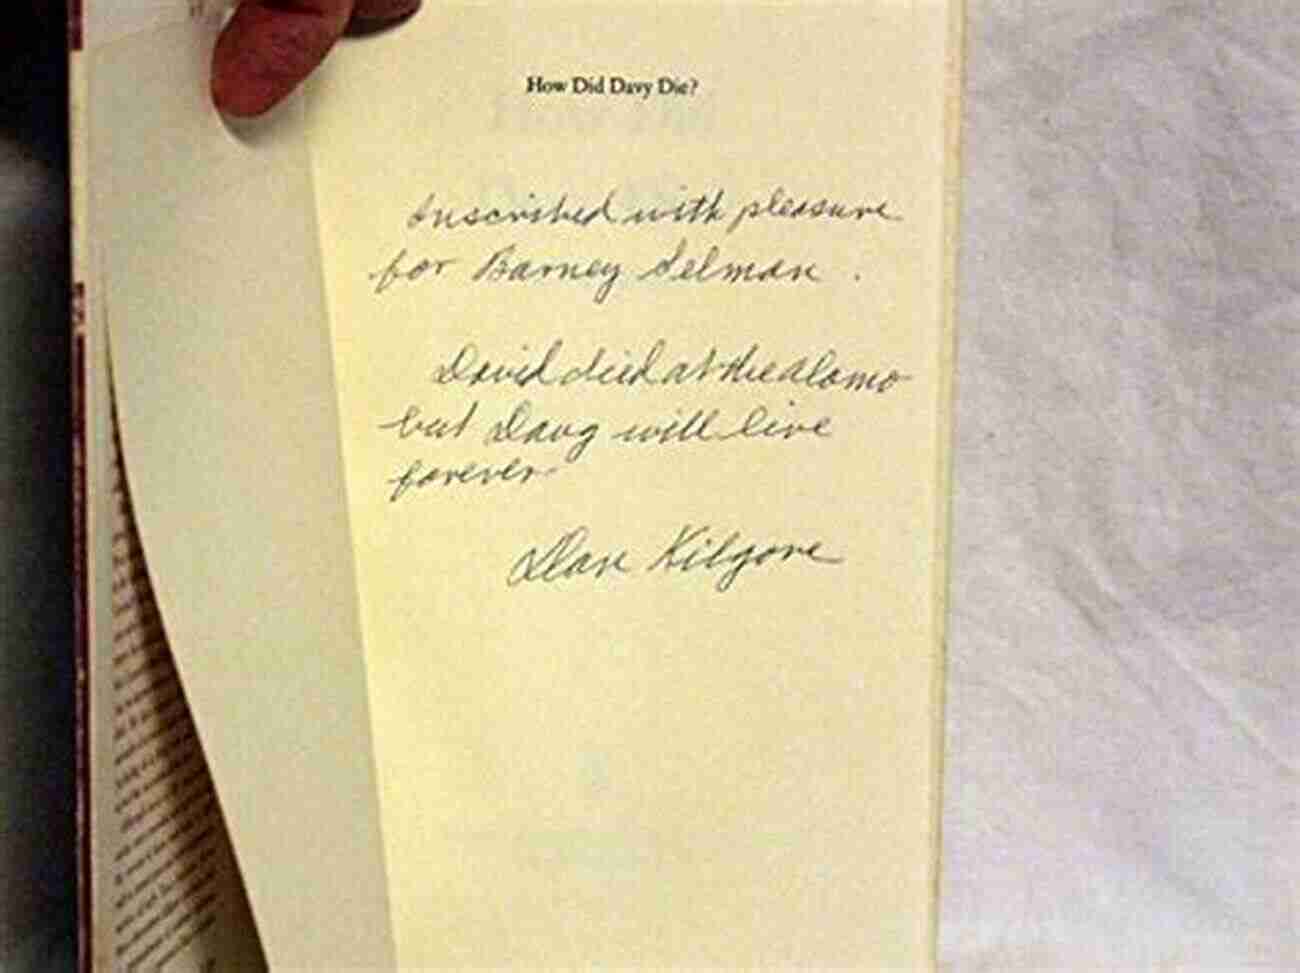 How Did Davy Die?
Inscribed with pleasure
for Barney Selman.
David died at the Alamo
but Davy will live
forever
Dan Kilgore